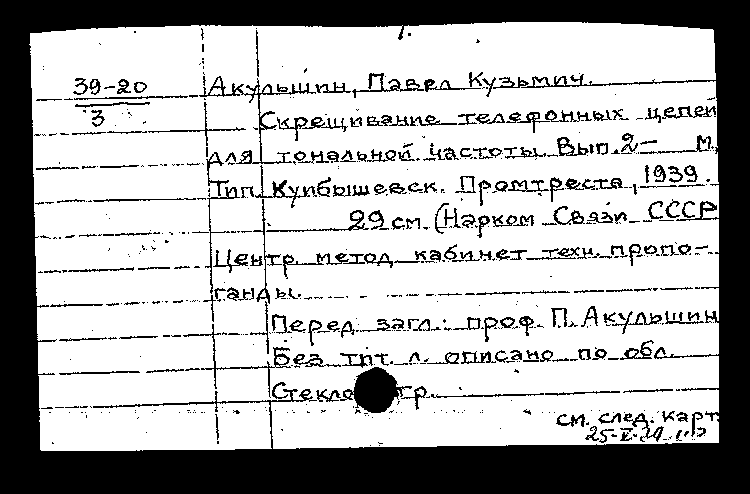 1.
39-20
3
Акульшин, Павел Кузьмич.
Скрещивание телефонных цепей
для тональной частоты. Вып. 2- М,
Тип. Куйбышевск. Промтреста, 1939.
29 см. (Нарком Связи СССР
Центр. метод кабинет техн. пропо-
ганды.
Перед загл.: проф. П. Акульшин
Без тит. л. описано по обл.
гр.
см. след. карт.